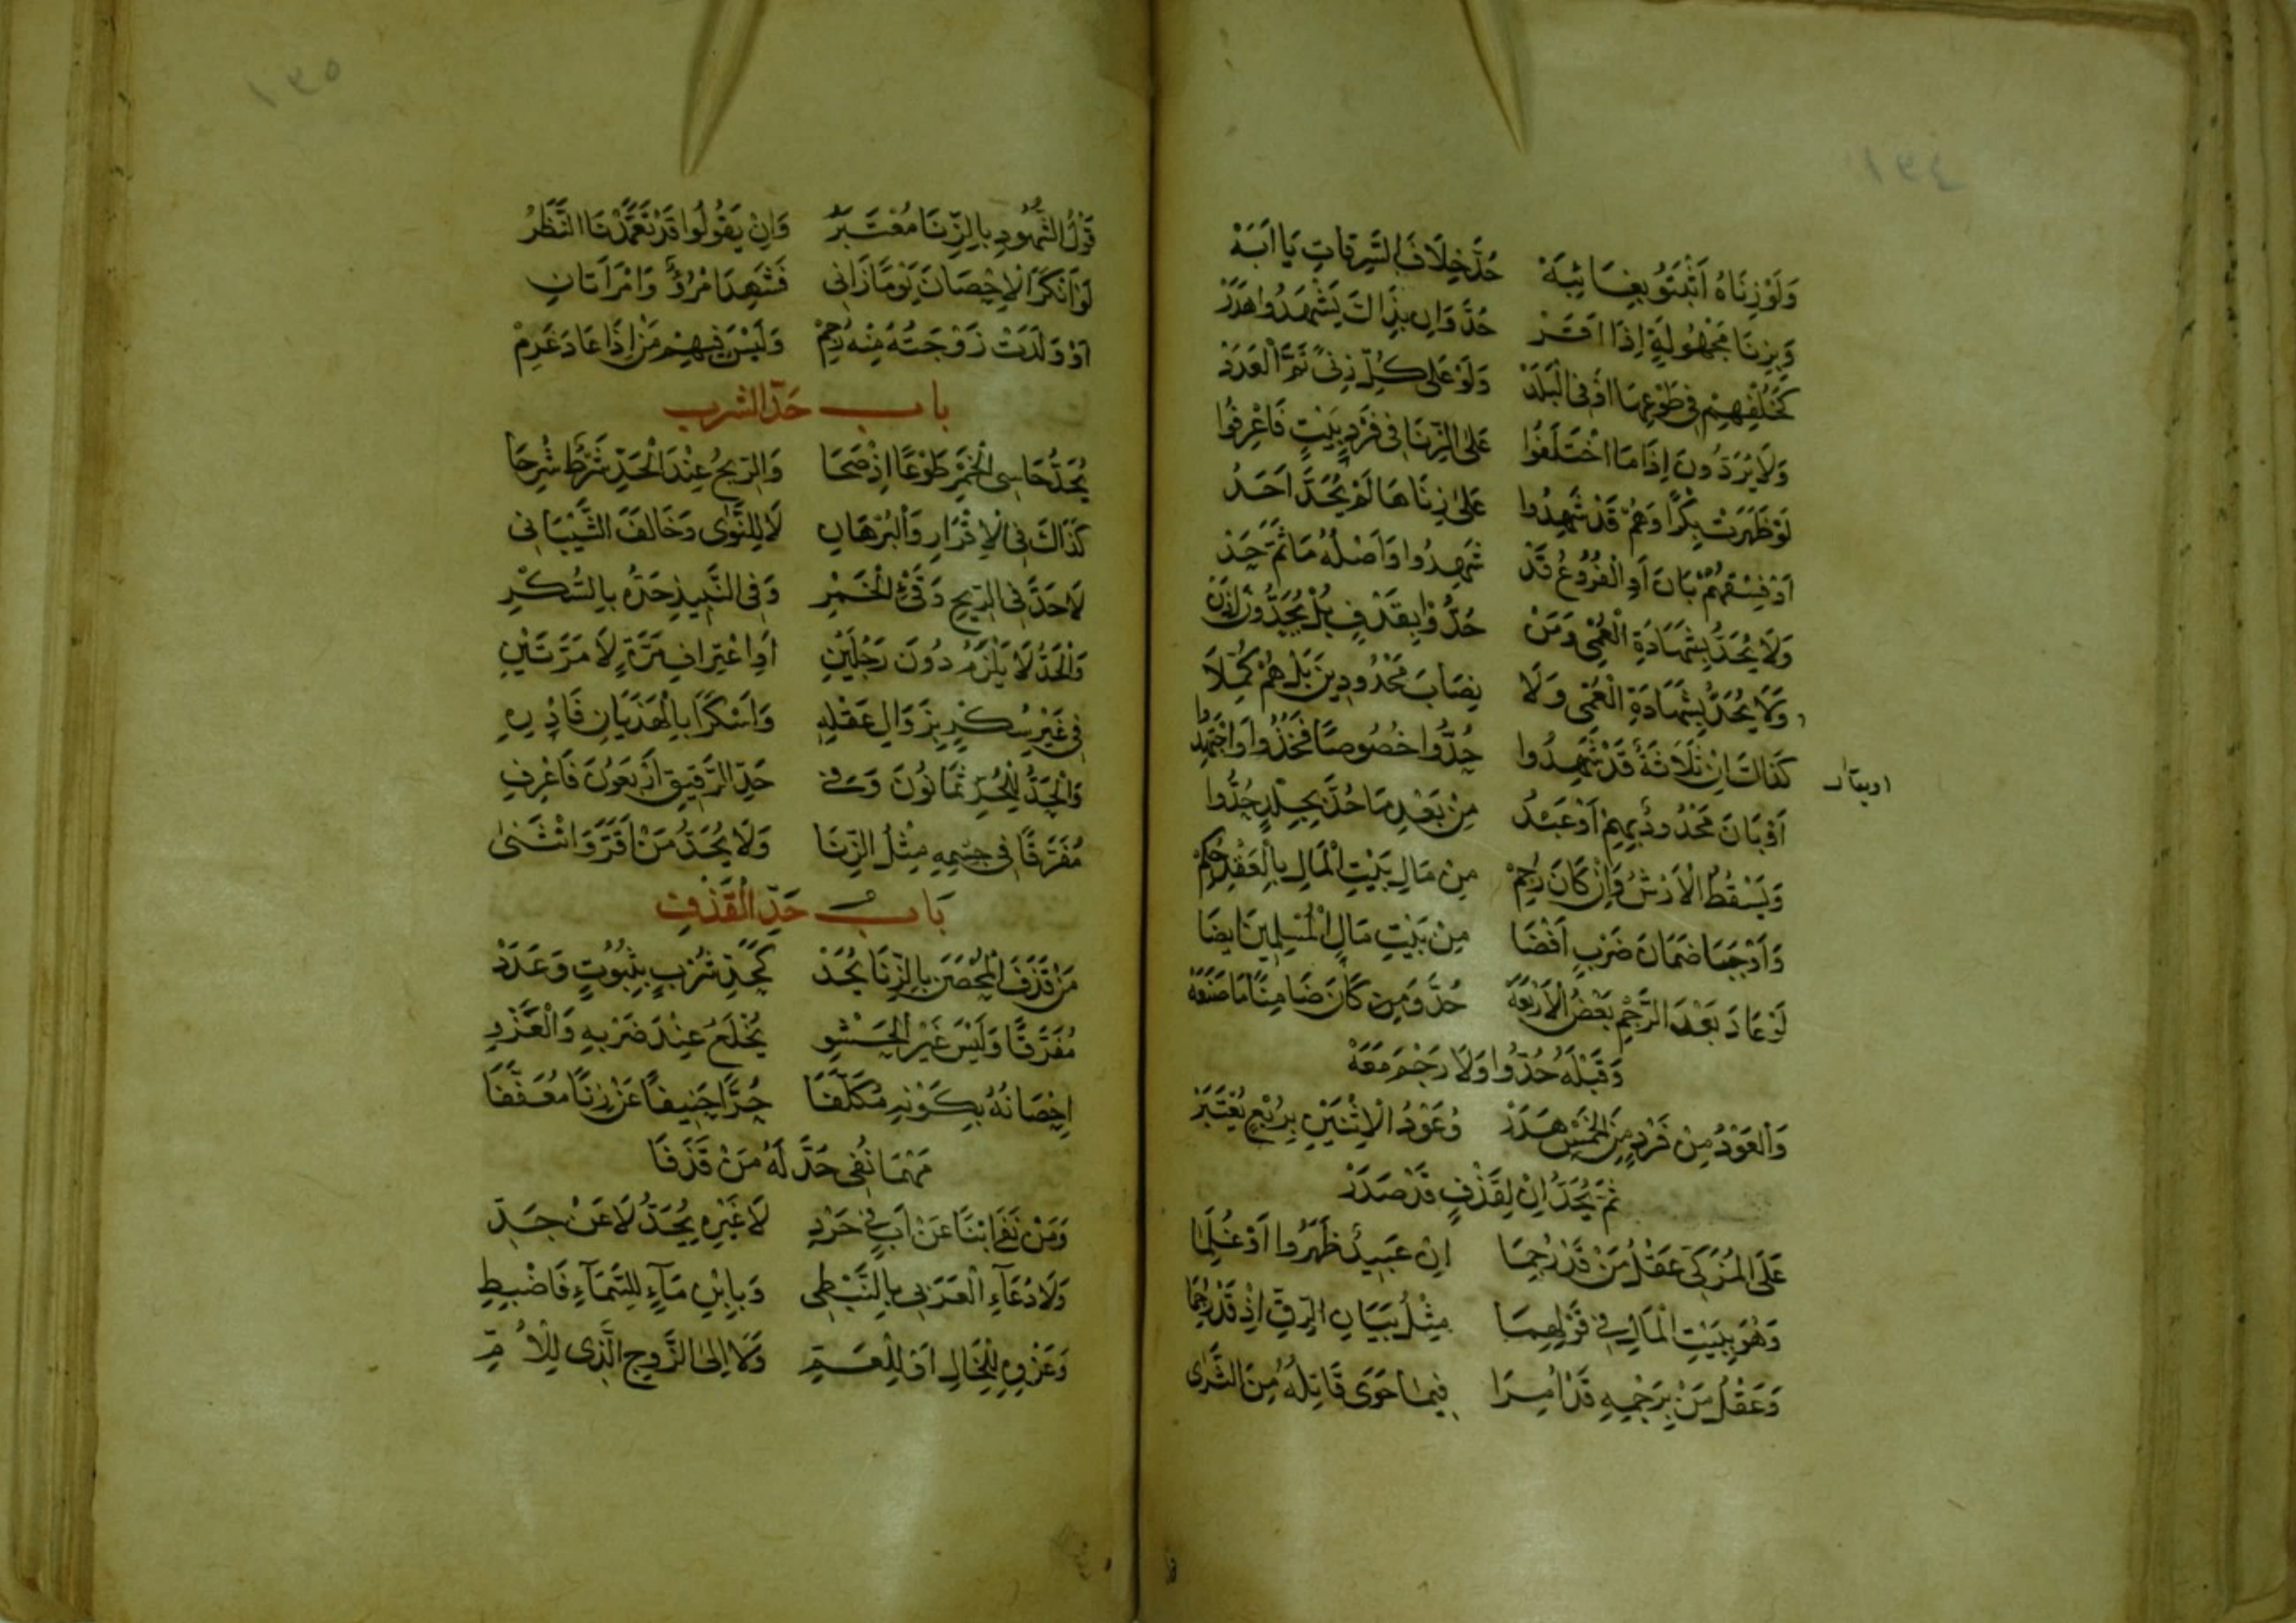 وَلَوْ زِنَاهُ اَثْبَتُوا بِغَائِبَهْ حُدَّ خِلَافَ السَّرِقَاتِ يَا اَبَهْ
وَبِزِنَا مَجْهُولَةٍ اِذَا اَقَرْ حُدَّ وَاِن بِذَاكَ يَشْهَدُوا هَدَرْ
كَخُلْفِهِمْ فِى طَوْعِهَا اَوْ فِى الْبَلَدْ وَلَوْ عَلى كُلِّ زِنًى ثَمَّ الْعَدَدْ
وَلَا يُرَدُّونَ اِذَا مَا اخْتَلَفُوا عَلَى الزِّنَا فِى فَرْدِ بَيْتٍ فَاعْرِفُوا
لَوْ ظَهَرَتْ بِكْرًا وَهُمْ قَدْ شَهِدُوا عَلَى زِنَاهَا لَمْ يُحَدَّ اَحَدُ
اَوْ فِسْقُهُمْ بَانَ اَوِ الْفُرُوعُ قَدْ شَهِدُوا وَاَصْلُهُ مَا ثَمَّ حَدْ
وَلَا يُحَدُّ بِشَهَادَةِ الْعُمْى وَمَنْ حُدُّوا بِقَذْفٍ بَلْ يُحَدُّونَ اِذَنْ
وَلَا يُحَدُّ بِشَهَادَةِ الْعُمْى وَلَا نِصَابَ مَحْدُودِينَ بَلْ هُمْ كُمَّلَا
كَذَاكَ اِنْ ثَلَاثَةٌ قَدْ شَهِدُوا حُدُّوا خُصُوصًا فَخُذُوا وَاجْتَهِدُوا
اَوْ بَانَ مَحْدُودٌ بِهِمْ اَوْ عَبْدُ مِنْ بَعْدِ مَا حُدَّ بِجِلْدٍ حُدُّوا
وَيَسْقُطُ الْاَرْشُ وَاِنْ كَانَ رُجِمْ مِنْ مَالِ بَيْتِ الْمَالِ بِالْعَقْلِ حُكِمْ
وَاَوْجَبَا ضَمَانَ ضَرْبٍ اَفْضَا مِنْ بَيْتِ مَالِ الْمُسْلِمِينَ اَيضَا
لَوْ عَادَ بَعْدَ الرَّجْمِ بَعْضُ الْاَرْبَعَهْ حُدَّ وَمِن كَانَ ضَامِنًا مَا صَنَعَهْ
وَقَبْلَهُ حُدُّوا وَلَا رَجْمَ مَعَهْ
وَالْعَوْدُ مِنْ فَرْدٍ مِنَ الْخَمْسِ هَدَرْ وَعَوْدُ الْاِثْنَيْنِ بِرُبْعٍ يُعْتَبَرْ
ثُمَّ يُحَدُّ اِنْ لِقَذْفٍ قَدْ صَدَرْ
عَلَى الْمُزَكِّى عَقْلُ مَنْ قَدْ رُجِمَا اِنْ عَبِيدٌ ظَهَرُوا اَوْ عُلِمَا
وَهْوَ بِبَيْتِ الْمَالِ فِى قَوْلِهِمَا مِثْلُ بَيَانِ الرِّقِّ اِذْ قَدْ رُجِمَا
وَعَقْلُ مَنْ بِرَجْمِهِ قَدْ اُمِرَا فِيمَا حَوَى قَاتِلُهُ مِنَ الثَّرَى
قَوْلُ الشُّهُودِ بِالزِّنَا مُعْتَبَرُ وَاِنْ يَقُولُوا قَدْ تَعَمَّدْنَا النَّظَرُ
لَوْ اَنْكَرَ الْاِحْصَانَ يَوْمًا زَانِى فَشَهِدَ امْرُؤٌ وَامْرَاَتَانِ
اَوْ وَلَدَتْ زَوْجَتُهُ مِنْهُ رُجِمْ وَلَيْسَ فِيهِمْ مَنْ اِذَا عَادَ غَرِمْ
باب حَدّ الشرب
يُحَدُّ حَاسِى الْخَمْرِ طَوْعًا اِذْ صَحَا وَالرِّيحُ عِنْدَ الْحَدِّ شَرْطٌ شُرِحَا
كَذَاكَ فِى الْاِقْرَارِ وَالْبُرْهَانِ لَا لِلنَّوٰى وَخَالَفَ الشَّيْبَانِى
لَا حَدَّ فِى الرِّيحِ وَقَىْءِ الْخَمْرِ وَفِى النَّبِيذِ حَدُّهُ بِالسُّكْرِ
وَالْحَدُّ لَا يَلْزَمُ دُونَ رَجُلَيْنِ اَوِ اعْتِرَافِ مَرَّةٍ لَا مَرَّتَيْنِ
فِى غَيْرِ سُكْرٍ بِزَوَالِ عَقْلِهِ وَاَسْكَرَا بِالْهَذَيَانِ فَادْرِهِ
وَالْحَدُّ لِلْحُرِّ ثَمَانُونَ وَفِى حَدِّ الرَّقِيقِ اَرْبَعُونَ فَاعْرِفِ
مُفَرَّقًا فِى جِسْمِهِ مِثْلُ الزِّنَا وَلَا يُحَدُّ مَنْ اَقَرَّ وَانْثَنٰى
بَاب حَدِّ الْقَذْفِ
مَنْ قَذَفَ الْمُحْصَنَ بِالزِّنَا يُحَدْ كَحَدِّ شُرْبٍ بِثُبُوتٍ وَعَدَدْ
مُفَرَّقًا وَلَيْسَ غَيْرُ الْحَشْوِ يُخْلَعُ عِنْدَ ضَرْبِهِ وَالْفَرْوِ
اِحْصَانُهُ بِكَوْنِهِ مُكَلَّفَا حُرًّا حَنِيفًا عَنْ زِنًا مُعَفَّفَا
مَهْمَا نُفِى حَدَّ لَهُ مَنْ قَذَفَا
وَمَنْ نَفَى ابْنًا عَنْ اَبٍ فِى حَرْدِ لَا غَيْرِهِ يُحَدُّ لَا عَنْ جَدِّ
وَلَا دُعَآءِ الْعَرَبِى بِالنَّبْطِى وَبِابْنِ مَآءٍ لِلسَّمَآءِ فَاضْبِطِ
وَعَزْوِهِ لِلْخَالِ اَوْ لِلْعَمِّ وَلَا اِلَى الزَّوجِ الَّذِى لِلْاُمِّ